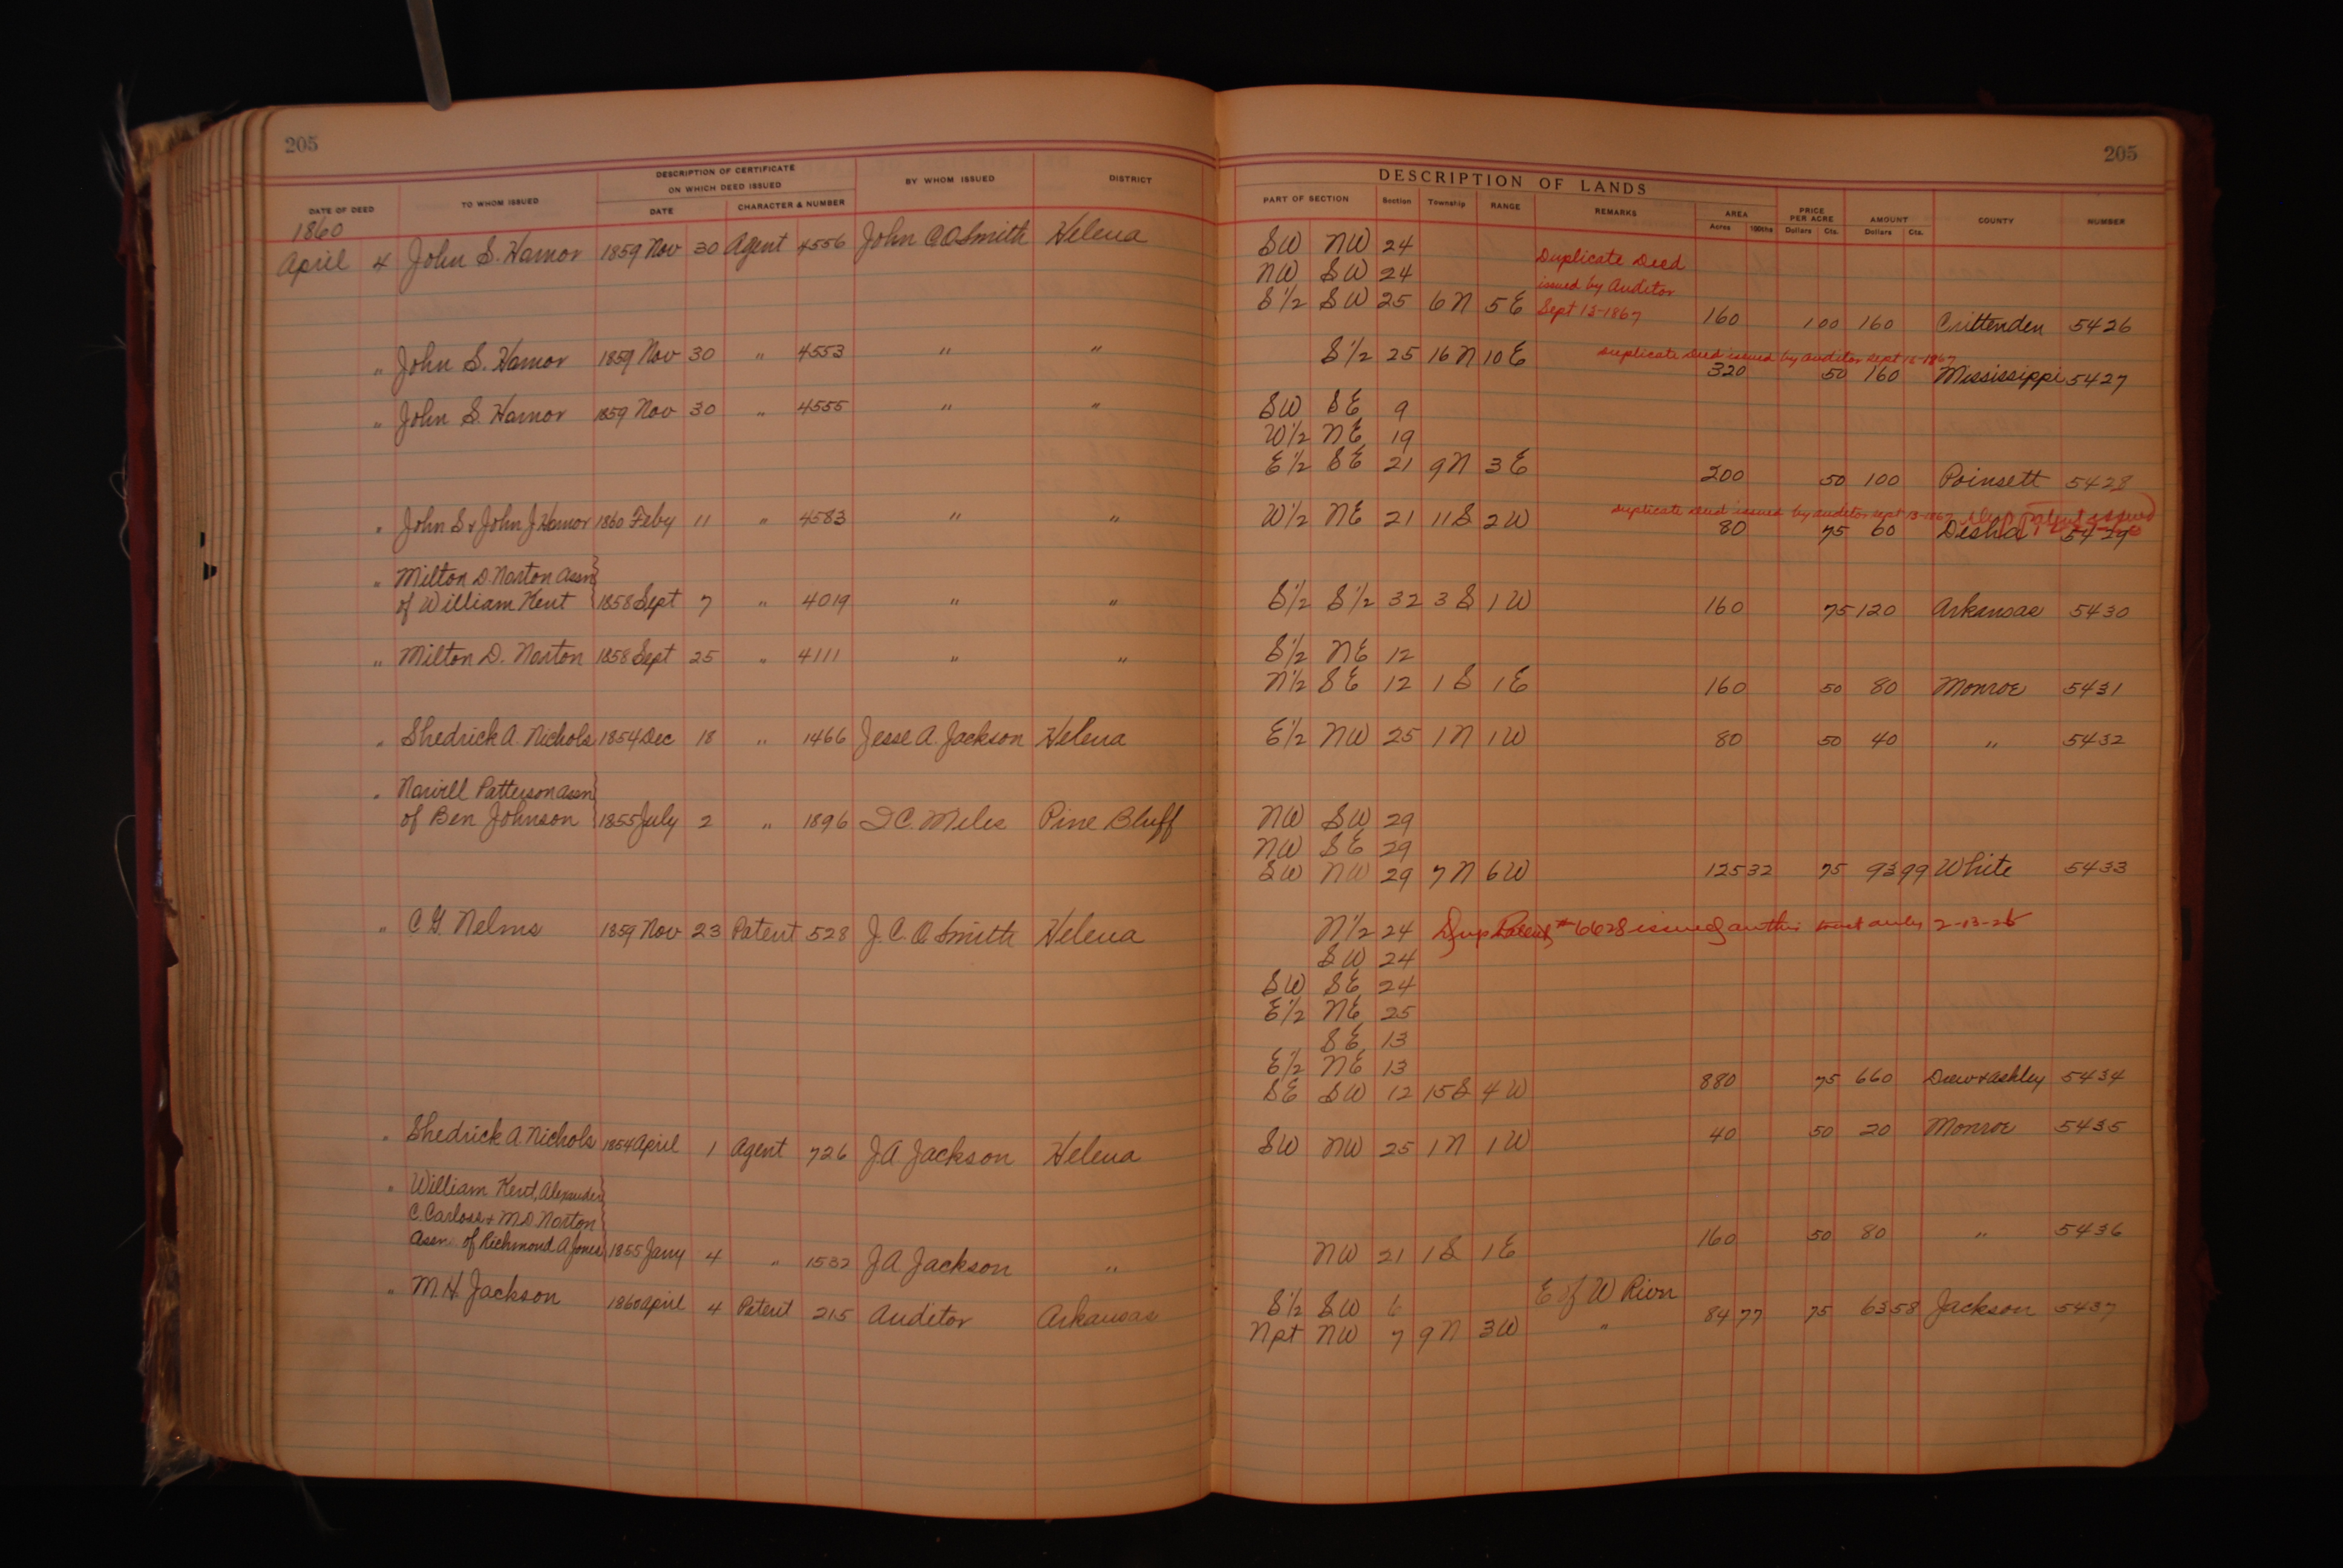 205
DATE OF DEED
TO WHOM ISSUED
DESCRIPTION OF CERTIFICATE
ON WHICH DEED ISSUED
DATE
CHARACTER & NUMBER
BY WHOM ISSUED
DISTRICT
1860
April 4 John S. Hamor 1859 Nov 30 Agent 4556 John C O Smith Helena
" John S. Hamor 1859 Nov 30 " 4553 " "
" John S. Hamor 1859 Nov 30 " 4555 " "
" John S & John J Hamor 1860 Feby 11 " 4583 " "
" Milton D Norton Assn
of William Kent 1858 Sept 7 " 4019 " "
" Milton D. Norton 1858 Sept 25 " 4111 " "
" Shedrick A. Nichols 1854 Dec 18 " 1466 Jesse A. Jackson Helena
" Norvill Patterson assn
of Ben Johnson 1855 July 2 " 1896 D C. Miles Pine Bluff
" C. G. Nelms 1859 Nov 23 Patent 528 J. C. O. Smith Helena
" Shedrick A Nichols 1854 April 1 Agent 726 J A Jackson Helena
" William Kent, Alexander
C. Carloss & M. D Norton
Assn. of Richmond A Jones 1855 Jany 4 " 1532 J A Jackson "
" M. H. Jackson 1860 April 4 Patent 215 Auditor Arkansas
205
DESCRIPTION OF LANDS
PART OF SECTION
Section
Township
RANGE
REMARKS
AREA
Acres 100ths
PRICE
PER ACRE
Dollars Cts.
AMOUNT
Dollars Cts.
COUNTY
NUMBER
SW NW 24 Duplicate Deed
NW SW 24 issued by Auditor
S 1/2 SW 25 6 N 5 E Sept 13-1867 160 1 00 160 Crittenden 5426
S 1/2 25 16 N 10 E Duplicate deed issued by auditor Sept 13-1867
320 50 160 Mississippi 5427
SW SE 9
W 1/2 NE 19
E 1/2 SE 21 9 N 3 E 200 50 100 Poinsett 5428
W 1/2 NE 21 11 S 2 W Duplicate deed issued by auditor Sept 13-1867 Dup patent issued
80 75 60 Desha 5429
S 1/2 S 1/2 32 3 S 1 W 160 75 120 Arkansas 5430
S 1/2 NE 12
N 1/2 SE 12 1 S 1 E 160 50 80 Monroe 5431
E 1/2 NW 25 1 N 1 W 80 50 40 " 5432
NW SW 29
NW SE 29
SW NW 29 7 N 6 W 125 32 75 93 99 White 5433
N 1/2 24 Dup Patent #6628 issued on this tract only 2-13-26
SW 24
SW SE 24
E 1/2 NE 25
SE 13
E 1/2 NE 13
SE SW 12 15 S 4 W 880 75 660 Drew & Ashley 5434
SW NW 25 1 N 1 W 40 50 20 Monroe 5435
NW 21 1 S 1 E 160 50 80 " 5436
S 1/2 SW 6 E of W River
Npt NW 7 9 N 3 W " 84 77 75 63 58 Jackson 5437